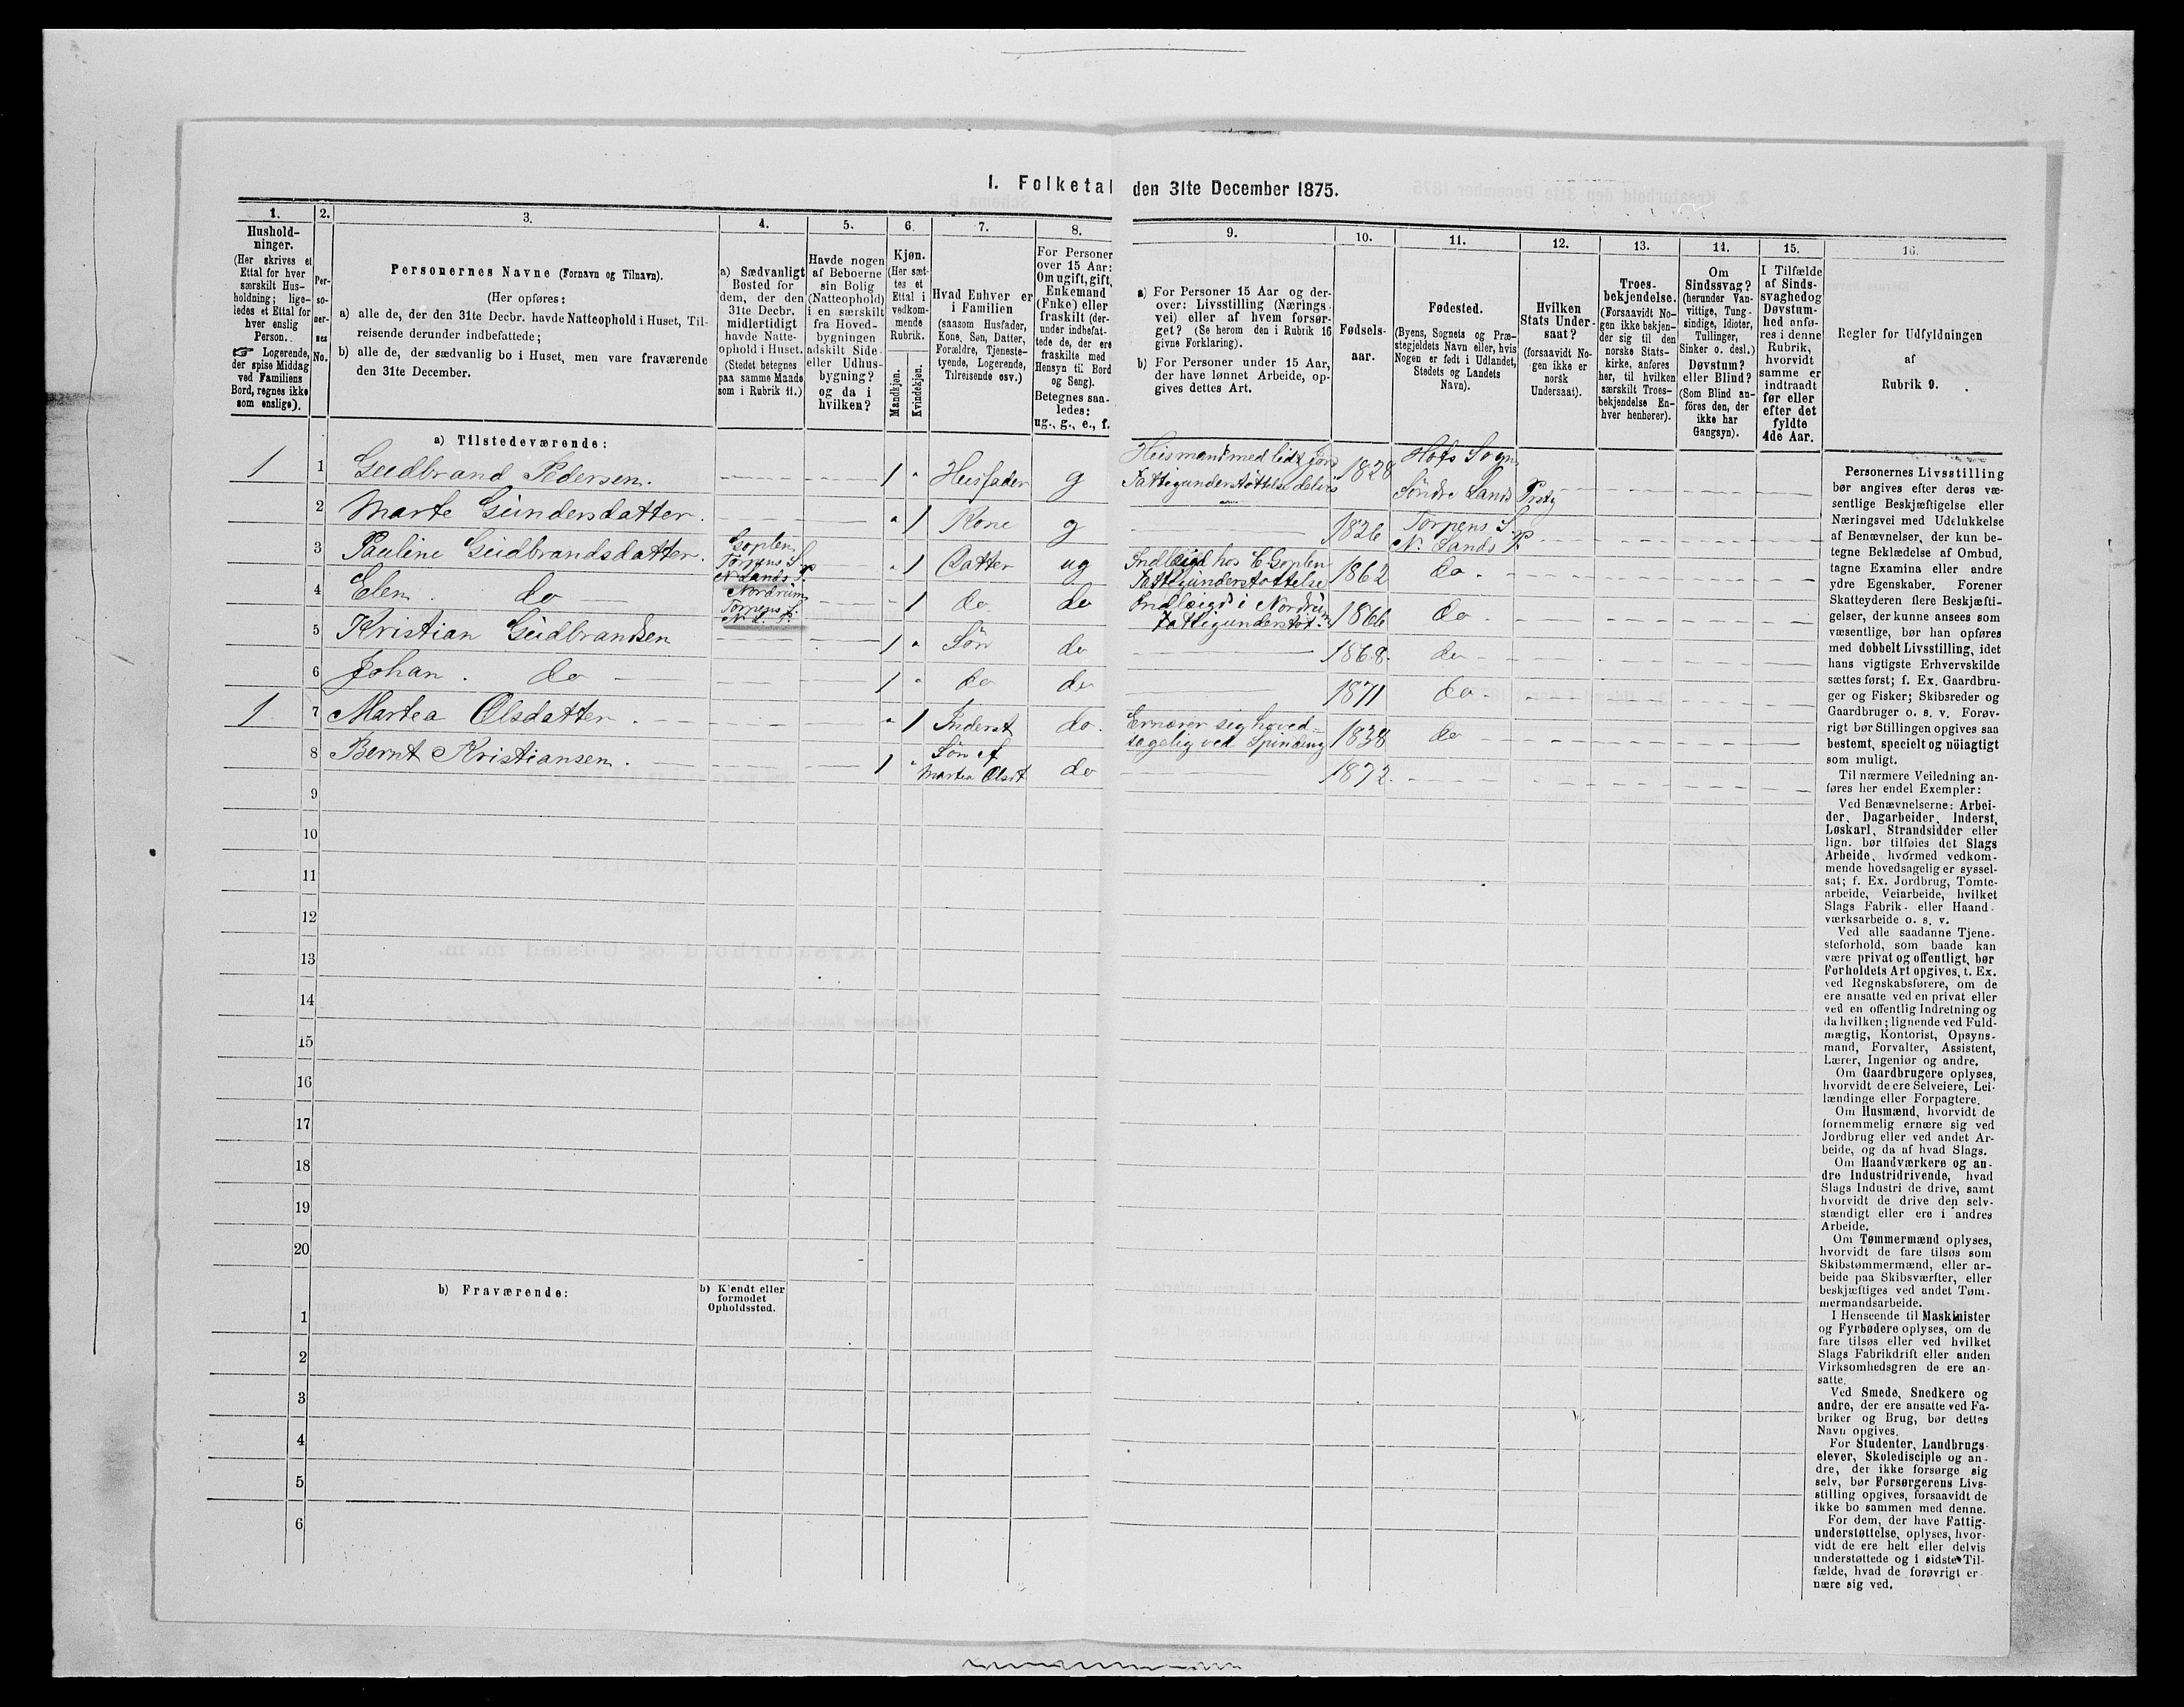 1. Folketal den 31te December 1875.
1.
Hushold-
ninger.
(Her skrives et
Ettal for hver
særskilt Hus-
holdning; lige-
ledes et Ettal for
hver enslig
Person.
☞ Logerende,
der spise Middag
ved Familiens
Bord, regnes ikke
som enslige).
2.
Per-
so-
ner-
nes
No.
3.
Personernes Navne (Fornavn og Tilnavn).
(Her opføres:
a) alle de, der den 31te Decbr. havde Natteophold i Huset, Til-
reisende derunder indbefattede;
b) alle de, der sædvanlig bo i Huset, men vare fraværende
den 31te December.
4.
a) Sædvanligt
Bosted for
dem, der den
31te Decbr.
midlertidigt
havde Natte-
ophold i Huset.
(Stedet betegnes
paa samme Maade
som i Rubrik 11.)
5.
Havde nogen
af Beboerne
sin Bolig
(Natteophold)
i en særskilt
fra Hoved-
bygningen
adskilt Side-
eller Udhus-
bygning?
og da i
hvilken?
6.
Kjøn.
(Her sæt-
tes et
Ettal i
vedkom-
mende
Rubrik.
Mandkjøn.
Kvindekjøn.
7.
Hvad Enhver er
i Familien
(saasom Husfader,
Kone, Søn, Datter,
Forældre, Tjeneste-
tyende, Logerende,
Tilreisende osv.)
8.
For Personer
over 15 Aar:
Om ugift, gift,
Enkemand
(Enke) eller
fraskilt (der-
under indbefat-
tede de, der ere
fraskilte med
Hensyn til Bord
og Seng).
Betegnes saa-
ledes:
ug., g., e., f.
9.
a) For Personer 15 Aar og der-
over: Livsstilling (Nærings-
vei) eller af hvem forsør-
get? (Se herom den i Rubrik 16
givne Forklaring).
b) For Personer under 15 Aar,
der have lønnet Arbeide, op-
gives dettes Art.
10.
Fødsels-
aar.
11.
Fødested.
(Byens, Sognets og Præ-
stegjeldets Navn eller, hvis
Nogen er født i Udlandet,
Stedets og Landets
Navn).
12.
Hvilken
Stats Under-
saat?
(forsaavidt No-
gen ikke er
norsk
Undersaat).
13.
Troes-
bekjendelse.
(Forsaavidt No-
gen ikke bekjen-
der sig til den
norske Stats-
kirke, anføres
her, til hvilken
særskilt Troes-
bekjendelse En-
hver henhører).
14.
Om
Sindssvag?
(herunder Van-
vittige, Tung-
sindige, Idioter,
Tullinger,
Sinker o. desl.)
Døvstum?
eller Blind?
(Som Blind an-
föres den, der
ikke har
Gangsyn).
15.
I Tilfælde
af Sinds-
svaghed og
Døvstum-
hed anfø-
res i denne
Rubrik,
hvorvidt
samme er
indtraadt
før eller
efter det
fyldte
4de Aar.
16.
Regler for Udfyldningen
af
Rubrik 9.
a) Tilstedeværende:
1 1 Gudbrand Pedersen. 1 " Husfader g Husmand med lidt Jord Fattigunderstøttelse delvis 1828 Hofs Sogn Søndre Lands Prstg
2 Marte Gundersdatter. " 1 Kone g 1826 Torpens S. N. Lands P.
3 Pauline Gudbrandsdatter. Goplen Torpens S. N Lands P. " 1 Datter ug Indlagd hos C Goplen Fattigunderstøttelse 1862 do
4 Elen do Nordrum Torpens S. N. L. P. 1 do do Indlægd i Nordrum Fattigunderstøt. 1866 do
5 Kristian Gudbrandsen 1 " Søn do 1868 do
6 Johan. do 1 " do do 1871 do
1 7 Martea Olsdatter. " 1 Inderst do. Ernærer sig hoved- sagelig ved Spinding 1838 do
8 Bernt Kristiansen. 1 " Søn af Martea Olsdt do 1872
9
10
11
12
13
14
15
16
17
18
19
20
b) Fraværende:
b) Kjendt eller
formodet
Opholdssted.
1
2
3
4
5
6
Personernes Livsstilling
bør angives efter deres væ-
sentlige Beskjæftigelse eller
Næringsvei med Udelukkelse
af Benævnelser, der kun be-
tegne Beklædelse af Ombud,
tagne Examina eller andre
ydre Egenskaber. Forener
Skatteyderen flere Beskjæfti-
gelser, der kunne ansees som
væsentlige, bør han opføres
med dobbelt Livsstilling, idet
hans vigtigste Erhvervskilde
sættes først; f. Ex. Gaardbru-
ger og Fisker; Skibsreder og
Gaardbruger o. s. v. Forøv-
rigt bør Stillingen opgives saa
bestemt, specielt og nöiagtigt
som muligt.
Til nærmere Veiledning an-
føres her endel Exempler:
Ved Benævnelserne: Arbei-
der, Dagarbeider, Inderst,
Løskarl, Strandsidder eller
lign. bør tilføies det Slags
Arbeide, hvormed vedkom-
mende hovedsagelig er syssel-
sat; f. Ex. Jordbrug, Tomte-
arbeide, Veiarbeide, hvilket
Slags Fabrik- eller Haand-
værksarbeide o. s. v.
Ved alle saadanne Tjene-
steforhold, som baade kan
være privat og offentligt, bør
Forholdets Art opgives, t. Ex.
ved Regnskabsførere, om de
ere ansatte ved en privat eller
ved en offentlig Indretning og
da hvilken; lignende ved Fuld-
mægtig, Kontorist, Opsyns-
mand, Forvalter, Assistent,
Lærer, Ingeniør og andre.
Om Gaardbrugere oplyses,
hvorvidt de ere Selveiere, Lei-
lændinge eller Forpagtere.
Om Husmænd, hvorvidt de
fornemmelig ernære sig ved
Jordbrug eller ved andet Ar-
beide, og da af hvad Slags.
Om Haandværkere og an-
dre Industridrivende, hvad
Slags Industri de drive, samt
hvorvidt de drive den selv-
stændigt eller ere i andres
Arbeide.
Om Tømmermænd oplyses,
hvorvidt de fare tilsøs som
Skibstømmermænd, eller ar-
beide paa Skibsværfter, eller
beskjæftiges ved andet Tøm-
mermandsarbeide.
I Henseende til Maskinister
og Fyrbødere oplyses, om de
fare tilsøs eller ved hvilket
Slags Fabrikdrift eller anden
Virksomhedsgren de ere an-
satte.
Ved Smede, Snedkere og
andre, der ere ansatte ved Fa-
briker og Brug, bør dettes
Navn opgives.
For Studenter, Landbrugs-
elever, Skoledisciple og an-
dre, der ikke forsørge sig
selv, bør Forsørgerens Livs-
stilling opgives, forsaavidt de
ikke bo sammen med denne.
For dem, der have Fattig-
understøttelse, oplyses, hvor-
vidt de ere helt eller delvis
understøttede og i sidste Til-
fælde, hvad de forøvrigt er-
nære sig ved.